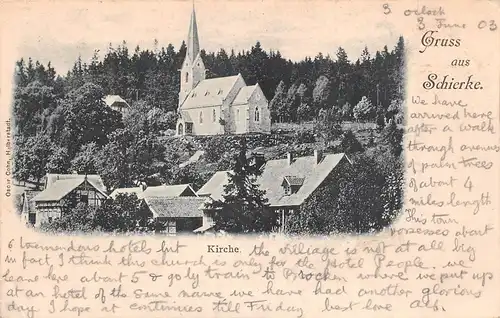 3 oclock
3 June 03
Gruss
aus
Schierke.
We have
arrived here
after a walk
through avenues
of palm trees
of about 4
miles length
This town
possesses about
Oscar Cohn, Halberstadt.
Kirche.
6 tremendous hotels but the village is not at all big
in fact, I think this church is only for the Hotel People. we
leave here about 5 & go by train to Brocken, where we put up
at an hotel of the same name we have had another glorious
day I hope it continues till Friday best love